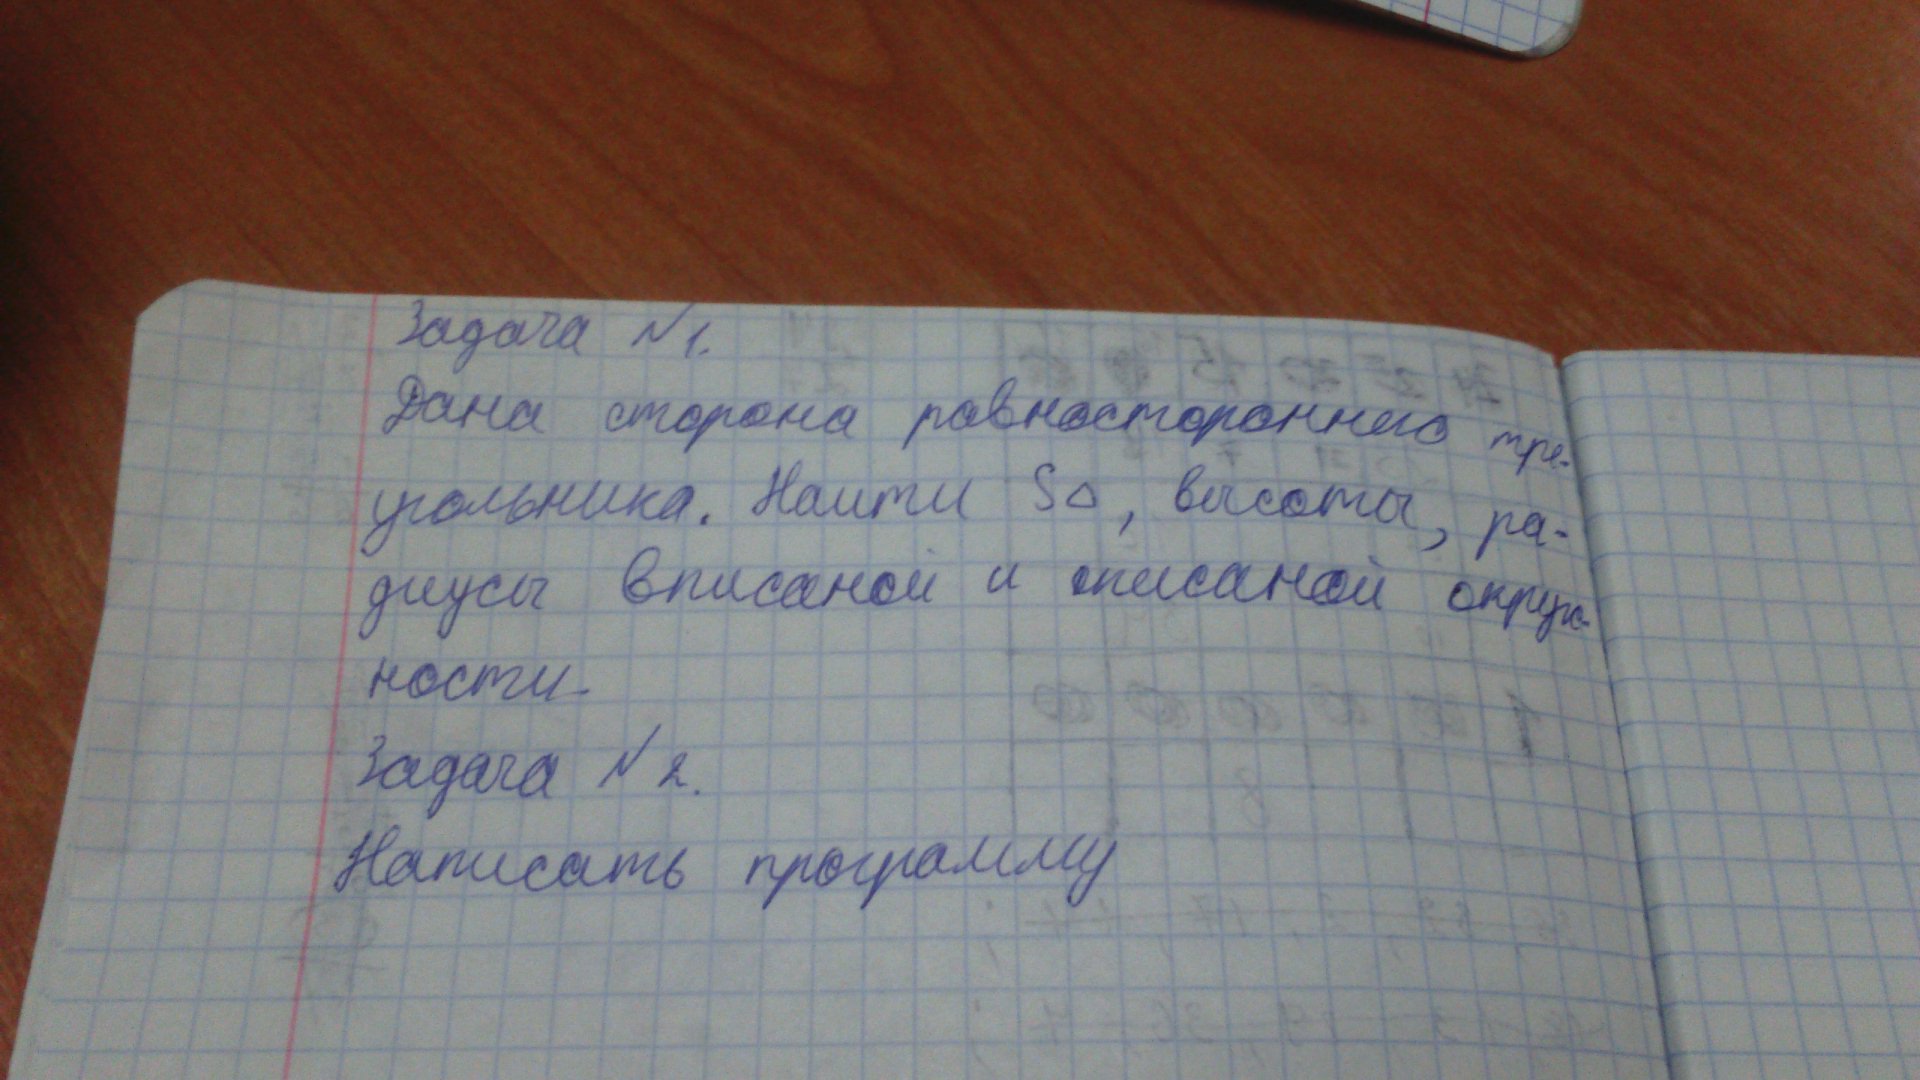 Задача №1.
Дана сторона равностороннего тре-
угольника. Наити S△, высоты, ра-
диусы вписаной и описаной окруж-
ности.
Задача №2.
Написать программу